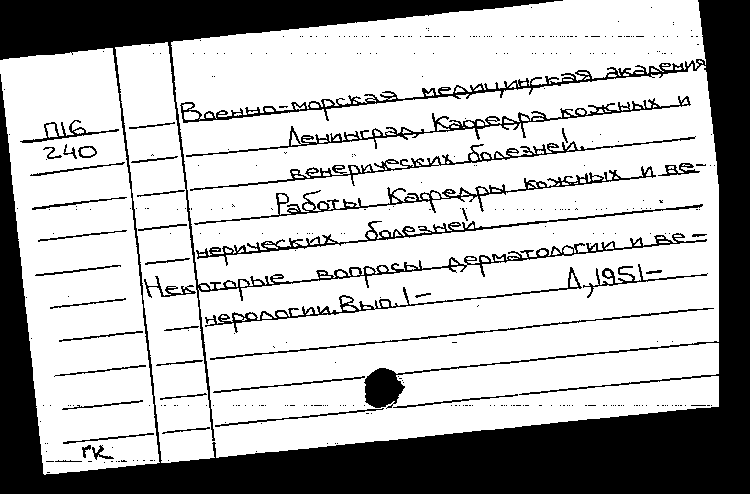 П16
240
Военно-морская медицинская академия,
Ленинград. Кафедра кожных и
венерических болезней.
Работы Кафедры кожных и ве-
нерических болезней.
Некоторые вопросы дерматологии и ве-
нерологии. Вып. 1 –
Л, 1951 –
ГК